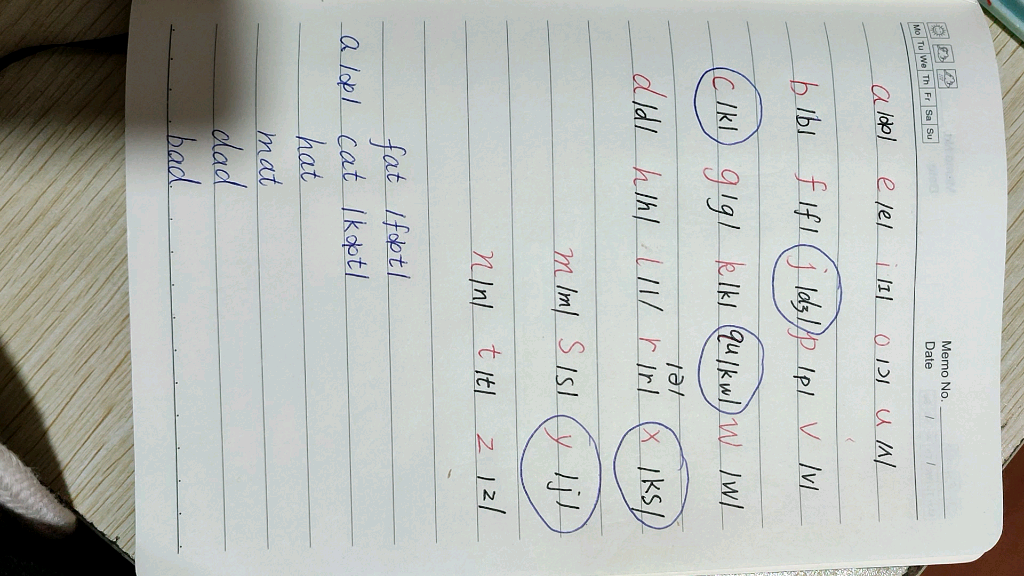 Memo No.
Mo Tu We Th Fr Sa Su
Date / /
a /æ/ e /e/ i /ɪ/ o /ɔ/ u /ʌ/
b /b/ f /f/ j /dʒ/ p /p/ v /v/
c /k/ g /g/ k /k/ qu /kw/ w /w/
/ə/
d /d/ h /h/ l /l/ r /r/ x /ks/
m /m/ s /s/ y /j/
n /n/ t /t/ z /z/
fat /fæt/
a /æ/ cat /kæt/
hat
mat
dad
bad